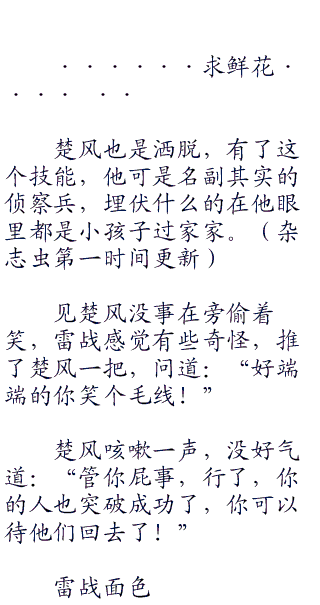 ······求鲜花·
··· ··
楚风也是洒脱，有了这
个技能，他可是名副其实的
侦察兵，埋伏什么的在他眼
里都是小孩子过家家。（杂
志虫第一时间更新）
见楚风没事在旁偷着
笑，雷战感觉有些奇怪，推
了楚风一把，问道：“好端
端的你笑个毛线！”
楚风咳嗽一声，没好气
道：“管你屁事，行了，你
的人也突破成功了，你可以
待他们回去了！”
雷战面色